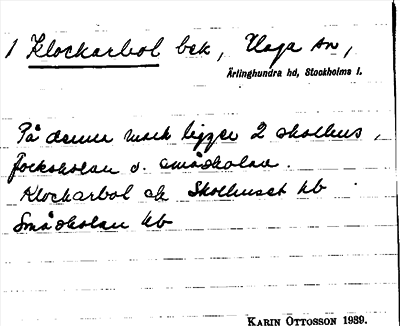 1 Klockarbol bek, Haga sn,
Ärlinghundra hd, Stockholms l.
På denna mark ligger 2 skolhus,
folkskolan o. småskolan.
Klockarbol ek Skolhuset kb
Småskolan kb
KARIN OTTOSSON 1939.